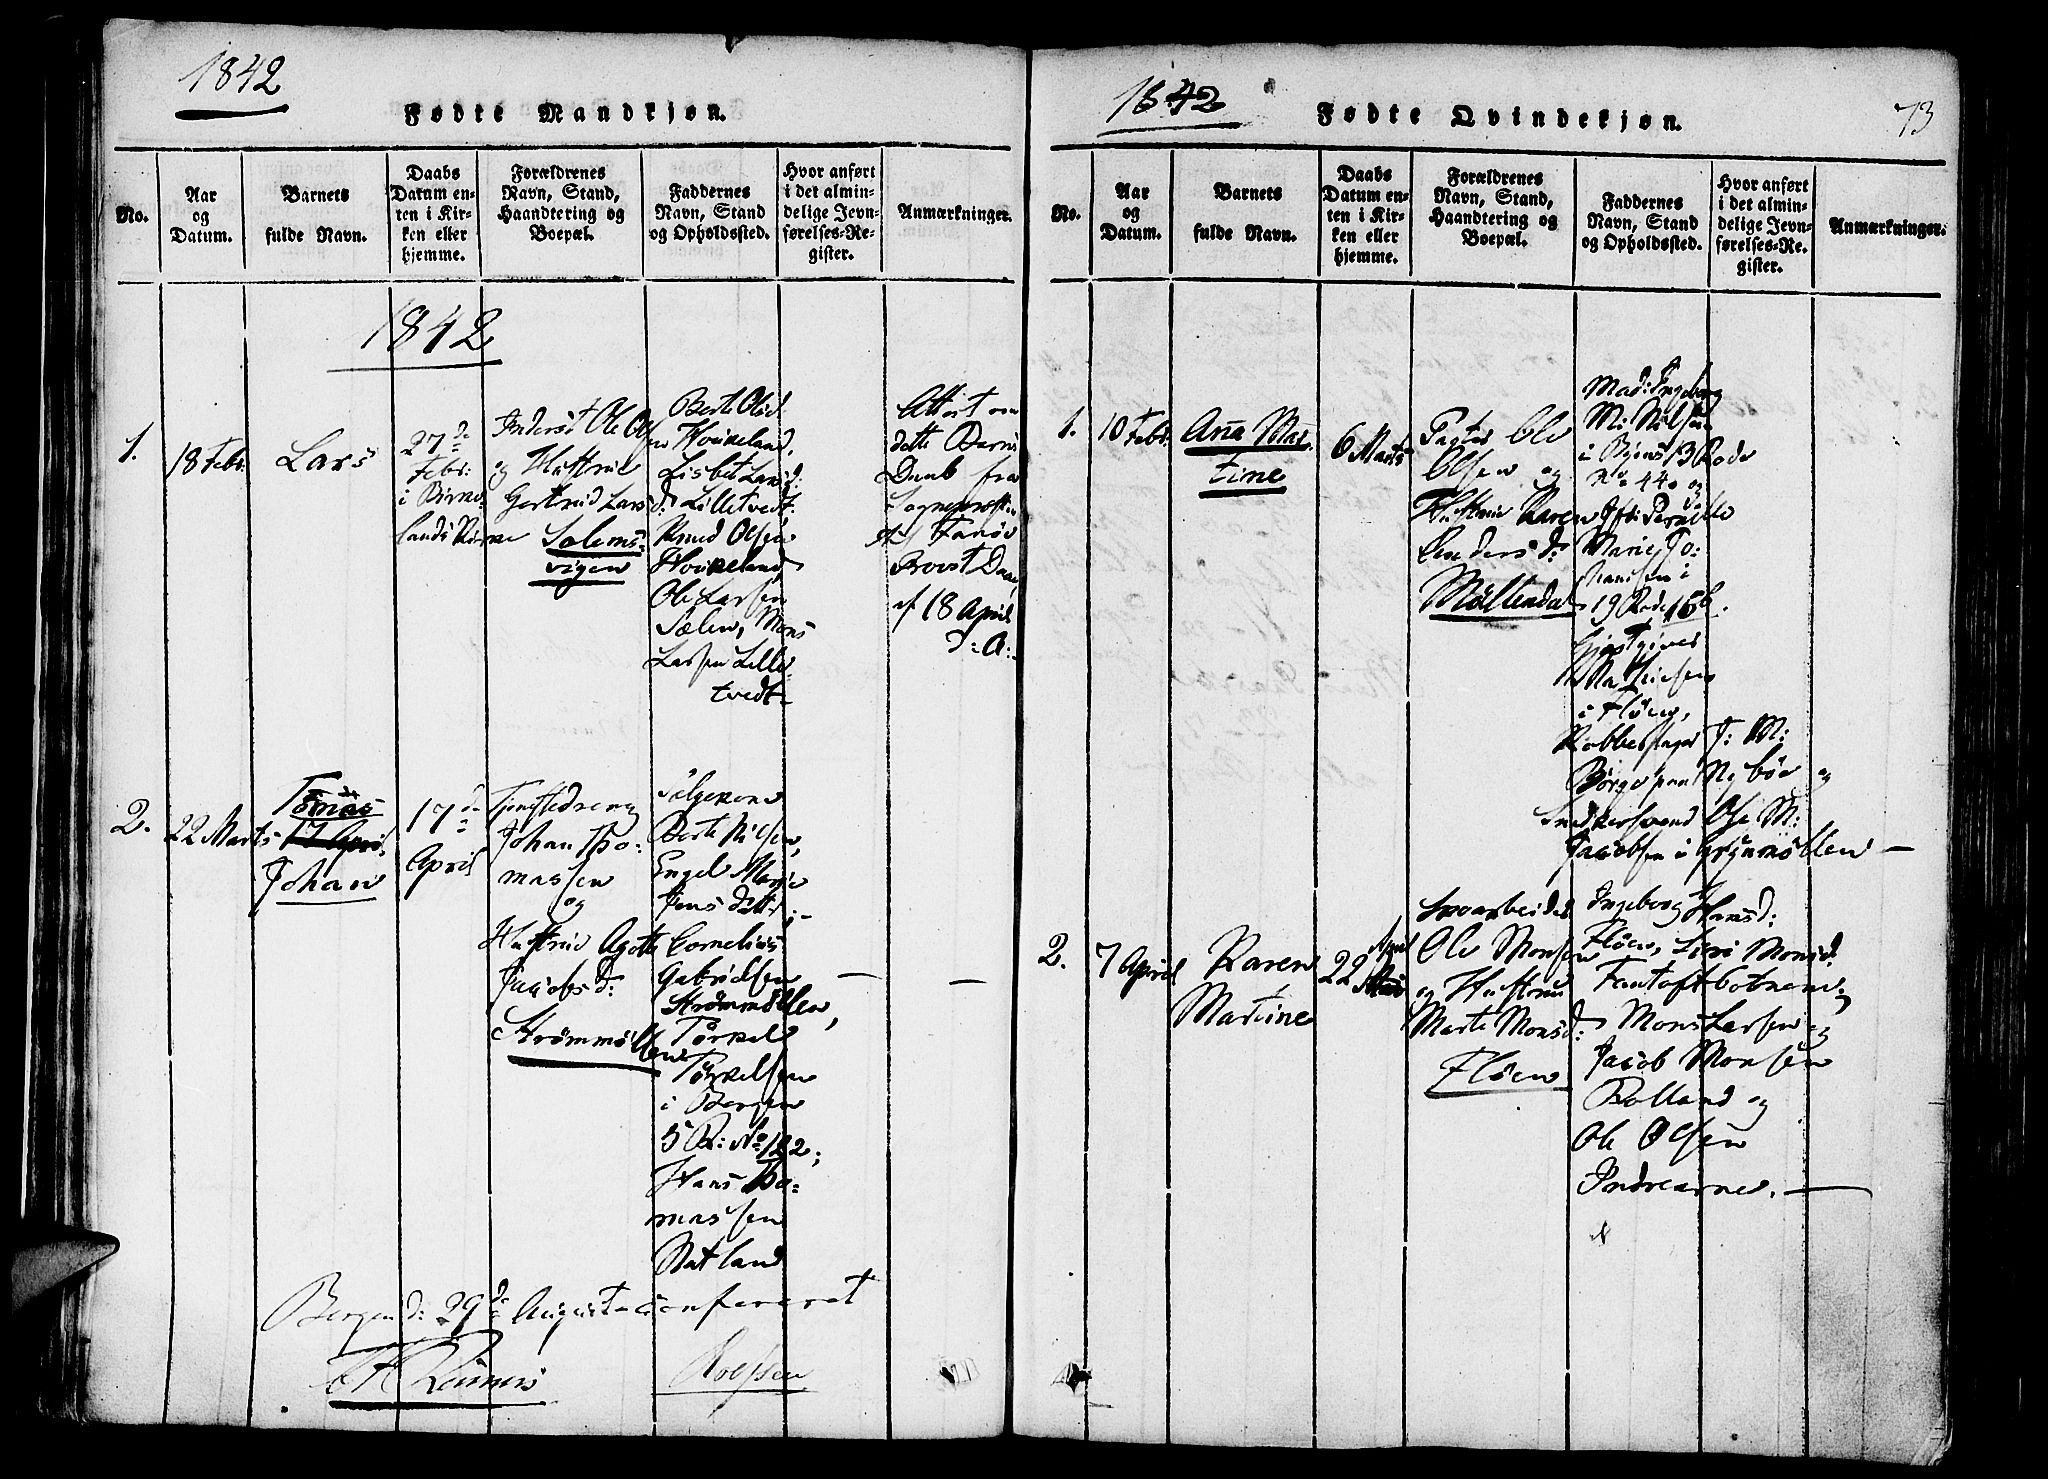 1842
Fødte Mandkjøn.
No.
Aar
og
Datum.
Barnets
fulde Navn.
Daabs
Datum en-
ten i Kir-
ken eller
hjemme.
Forældrenes
Navn, Stand,
Haandtering og
Boepæl.
Faddernes
Navn, Stand
og Opholdssted.
Hvor anført
i det almin-
delige Jevn-
førelses-Re-
gister.
Anmærkninger.
1842
1.
18 Febr.
Lars
27de
Febr:
i Birke-
lands Kirke
Ole Olsen
og Hustrue
Gertrud Larsd:
Solems-
vigen
Berte Olsd:
Houkeland,
Lisbet Larsd:
Lilletvedt:
Knud Olsen
Houkeland
Ole Larsen
Sælen, Mons
Larsen Lille
tvedt-
Attest om
dette Barns
Daab fra
Sognepræsten
til Fanøe
Provst Daae,
af 18 April
d: A:
2.
22 Marts
Tomas
17 April
Johan
17de
April
Johan Tho-
massen
og
Hustrue Agote
Jacobsd:
Strømmøllen
Berte Nilsen,
Engel Marie
Jensdatter
Cornelius
Gabrielsen
Strømmøllen,
Tørkel
Tørkelsen
i Bergen
5 R: No 122;
Hans Tho-
massen
Natland
Bergen d: 29de August confereret
Rolfsen
1842
Fødte Qvindekjøn.
73
No.
Aar
og
Datum.
Barnets
fulde Navn.
Daabs
Datum en-
ten i Kir-
ken eller
hjemme.
Forældrenes
Navn, Stand,
Haandtering og
Boepæl.
Faddernes
Navn, Stand
og Opholdssted.
Hvor anført
i det almin-
delige Jevn-
førelses-Re-
gister.
Anmærkninger.
1.
10 Febr.
Ana Mar-
tine
6 Marts
Ole
Olsen og
Hustrue Karen
Andersd:
Møllendal
Mad: Ingeborg
M: Nilsen
i Byens 13 Rode
No 440 og
Jfr: Pernille
Marie Jo-
hansen i
19 Rode 16b.
Gjæstgiver
Mathiesen
i Fløen,
Kobberslager J: M:
Børge paa Nybøe og
Snedkersvend Ole M:
Jacobsen i Grynmøllen —
2.
7 April
Karen
Martine
22 April
Ole Monsen
og Hustrue
Marte Monsd:
Fløen
Ingeborg Hansd:
Fløen, Siri Monsd.
Fantoftbotnen,
Mons Larsen og
Jacob Monsen
Rolland og
Ole Olsen
Indrearne. —